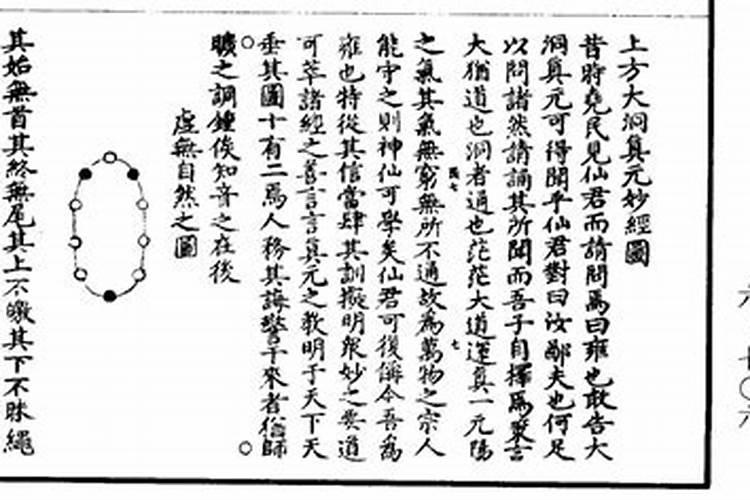 上方大洞真元妙經圖
昔時堯民見仙君而請問焉曰雍也敢告大
洞真元可得聞乎仙君對曰汝鄙夫也何足
以問諸然請誦其所聞而吾子自擇焉聚言
大猶道也洞者通也茫茫大道運真一元陽
之氣其氣無窮無所不通故為萬物之宗人
能守之則神仙可學矣仙君可復偁令吾為
雍也特從其信當肆其訓擬明眾妙之要道
可萃諸經之善言言真元之教明于天下天
垂其圖十有二焉人務其誨警于來者猶師
曠之調鍾俟知音之在後
虛無自然之圖
其始無首其終無尾其上不皦其下不昧繩
六
七〇六